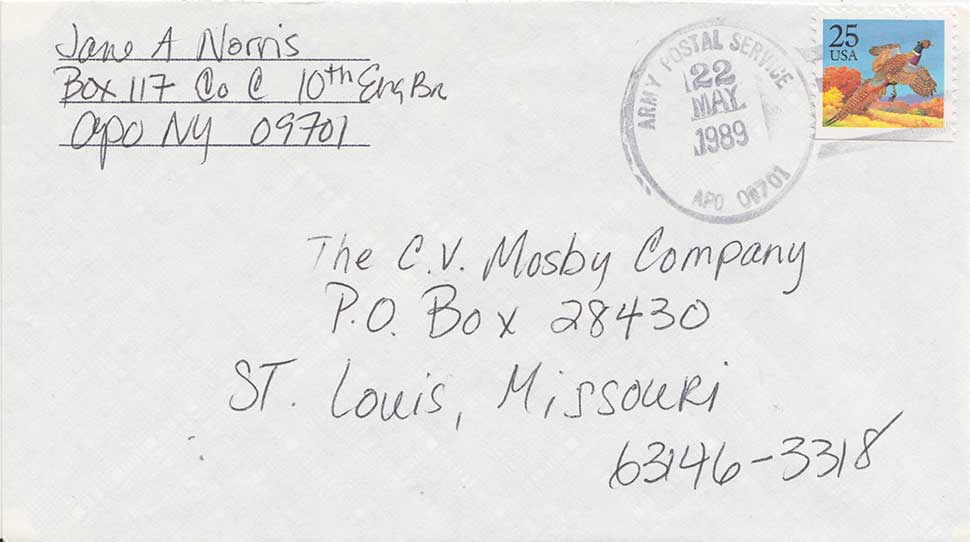 Jane A Norris
Box 117 Co C 10th Eng Bn
Apo NY 09701
ARMY POSTAL SERVICE
22
MAY
1989
APO 09701
25
USA
The C.V. Mosby Company
P.O. Box 28430
ST. Louis, Missouri
63146-3318